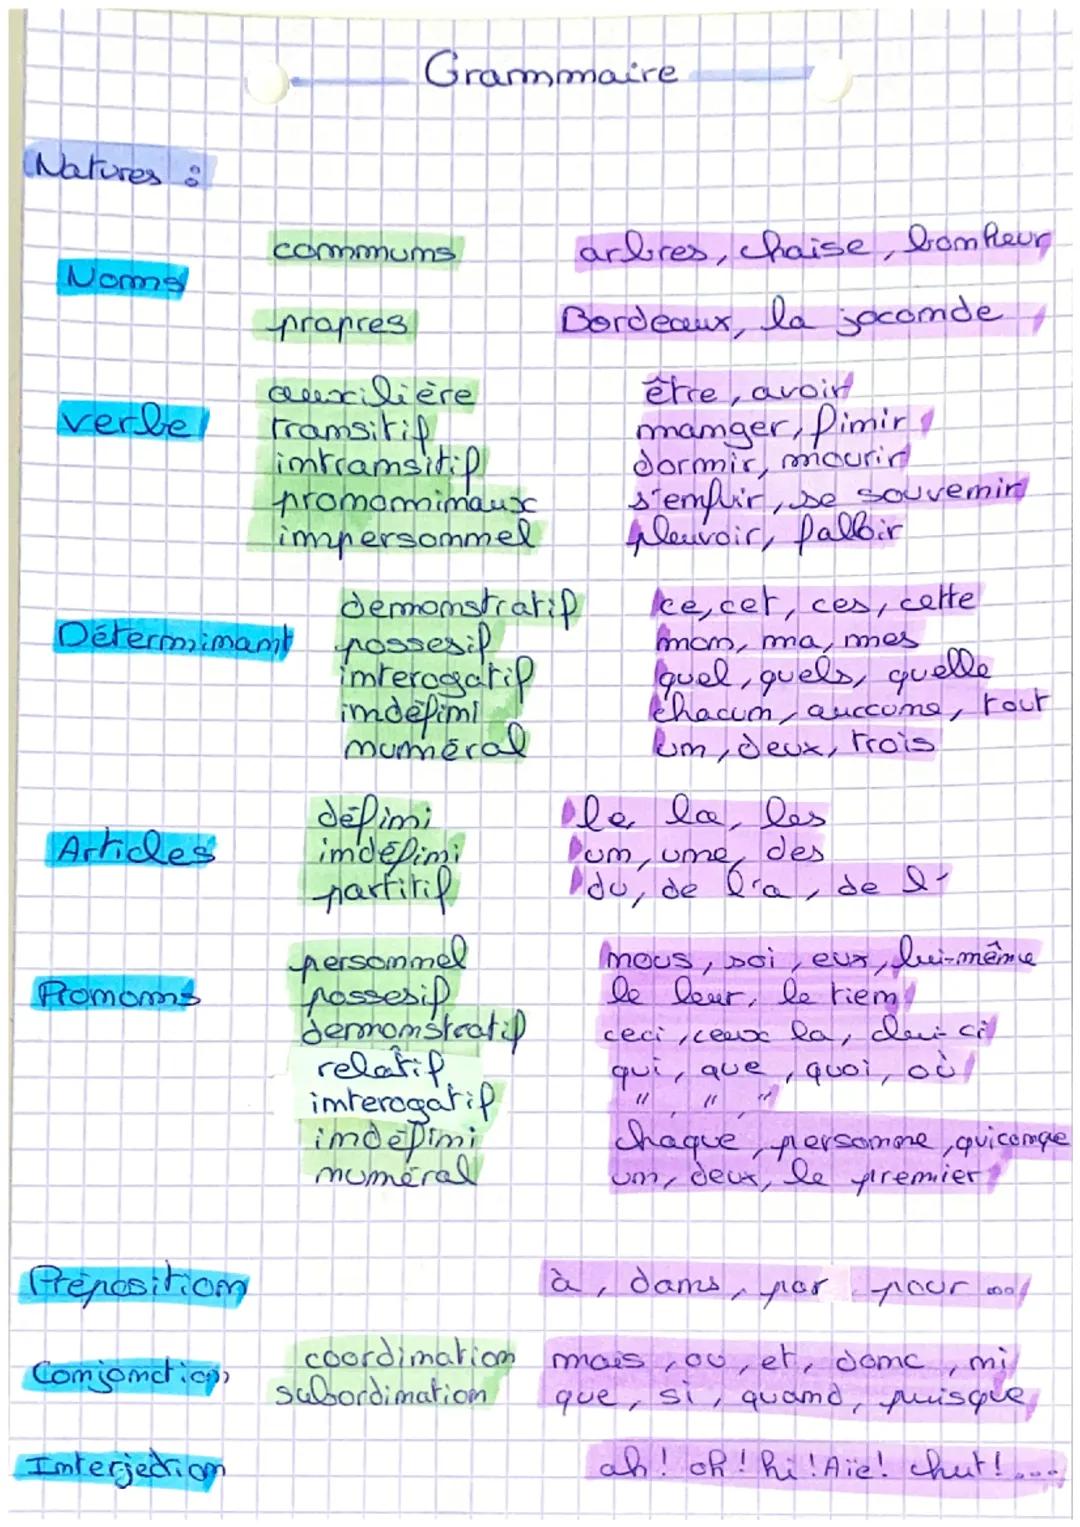 Grammaire
Natures :
communs arbres, chaise, bonheur
Noms
propres Bordeaux, la joconde
auxilière être, avoir
verbe transitif manger, finir
intransitif dormir, mourir
pronominaux s'enfuir, se souvenir
impersonnel pleuvoir, falloir
demonstratif ce, cet, ces, cette
Déterminant possesif mon, ma, mes
interogatif quel, quels, quelle
indéfini chacun, auccune, tout
numéral un, deux, trois
défini le, la, les
Articles indéfini un, une, des
partitif du, de l'a, de l'
personnel nous, soi, eux, lui-même
Pronoms possesif le leur, le tien
demonstratif ceci, ceux la, clui-ci
relatif qui, que, quoi, où
interogatif " , " , "
indéfini chaque, personne, quiconque
numéral un, deux, le premier
Préposition à, dans, par, pour ...
Conjonction coordination mais, ou, et, donc, ni
subordination que, si, quand, puisque
Interjection ah! oh! hi! Aïe! chut! ....